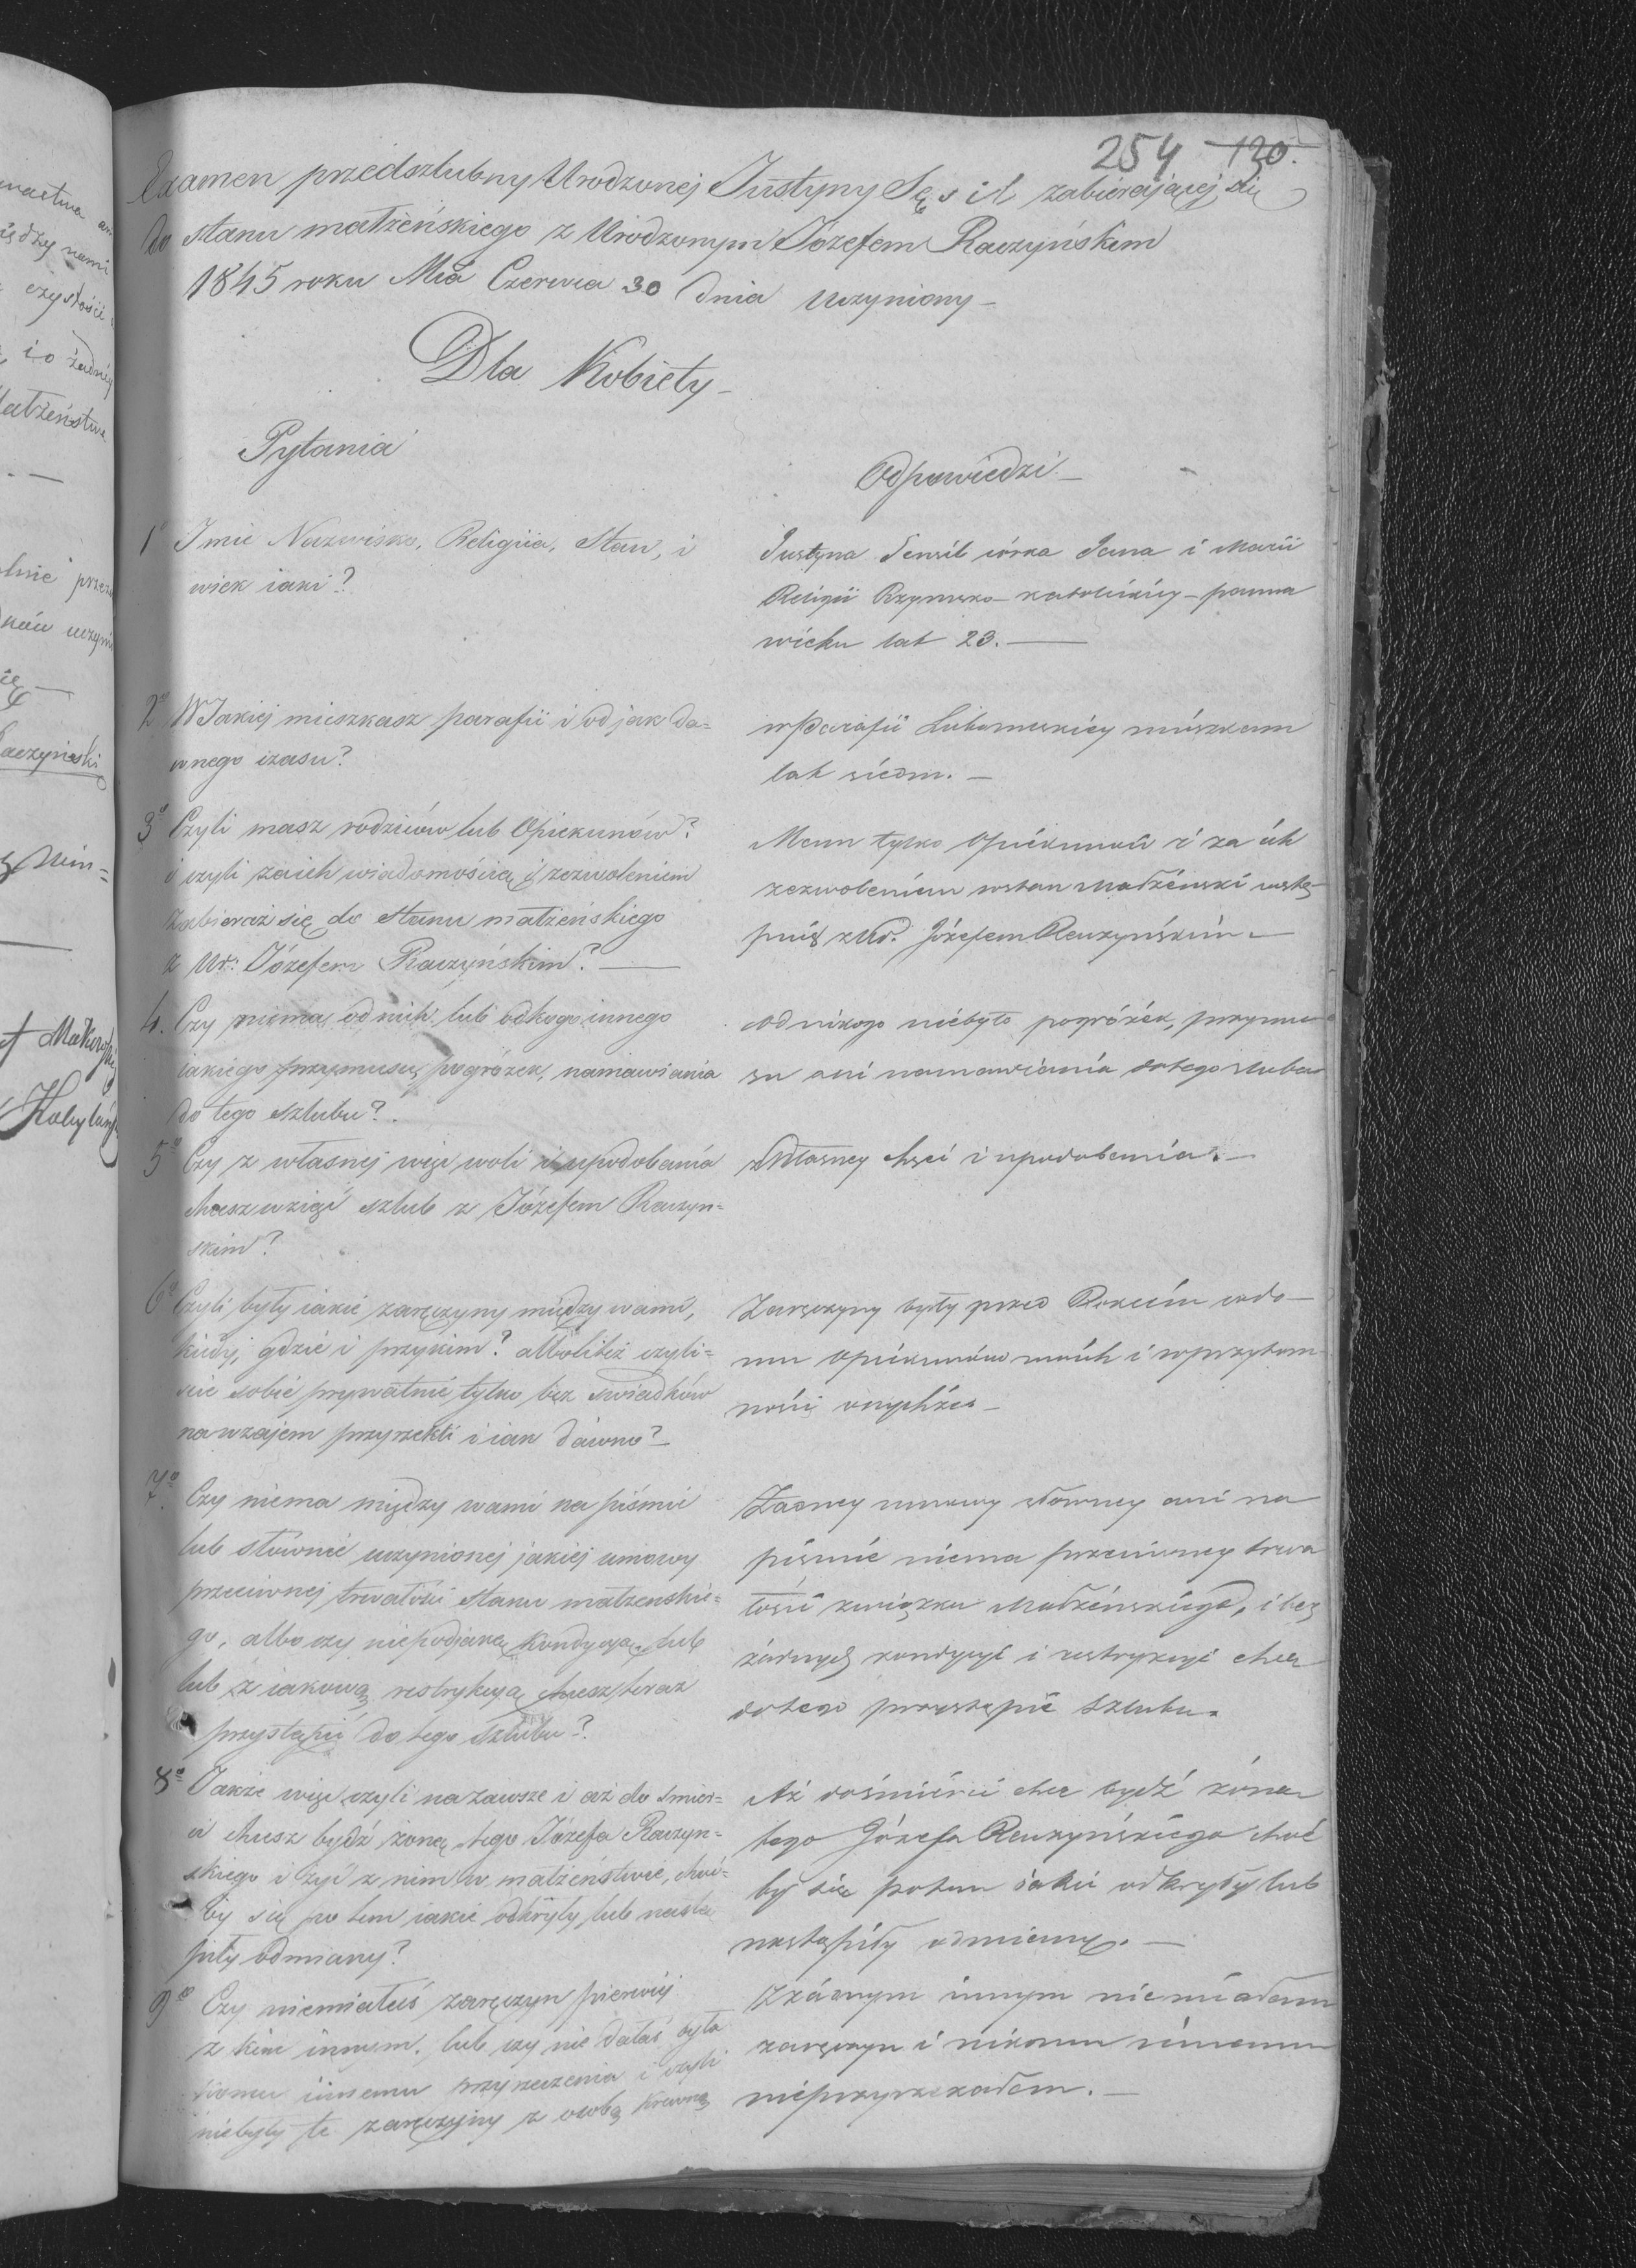 254 130.
Examen przedszlubny Urodzonej Justyny Sęsik zabierającej się
do stanu małżeńskiego z Urodzonym Józefem Raczyńskim
1845 roku Mca Czerwca 30 dnia uczyniony –
Dla Kobiety –
Pytania
Odpowiedzi –
1° Imie Nazwisko, Religiia, Stan, i
wiek iaki?
Justyna córka Jana i Maryi
Religii Rzymsko – katolickiéy – panna
wieku lat 23. —
2° W Jakiej mieszkasz parafii i od jak da=
wnego czasu?
w Parafii mieszkam
lat siedm. –
3° Czyli masz rodziców lub Opiekunów?
i czyli za ich wiadomością i zezwoleniem
zabierasz się do stanu małżeńskiego
z Ur: Józefem Raczyńskim? —
Mam tylko Opiekunów i za ich
zezwoleniem w stan Małżeński wstę-
puię z Ur. Józefem Raczyńskim –
4. Czy niemasz od nich lub od kogo innego
iakiego przymusu, pogrózek, namawiania
do tego szlubu?
Od nikogo niebyło pogrózek, przymu
su ani namawiania do tego szlubu
5° Czy z własnej więc woli i upodobania
chcesz wziąć szlub z Józefem Raczyn=
skim?
z Własney chęci i upodobania. –
6° Czyli były iakie zaręczyny między wami,
kiedy, gdzie i przy kim? alboliteż czyli=
ście sobie prywatnie tylko bez swiadków
nawzajem przyrzekli i iak dawno? –
Zaręczyny były przed Rokiem w do-
mu opiekunów moich i w przytom-
ności onychże –
7° Czy niema między wami na piśmie
lub słównie uczynionej jakiej umowy
przeciwnej trwałości stanu małżenskie=
go, albo czy nie pod jaką kondycyą lub
lub z iakową restrykcyą chcesz teraz
przystąpić do tego szlubu?
Żadney umowy słowney ani na
piśmie niema przeciwney trwa
łości związku Małżeńskiego, i bez
żadnych kondycyi i restrykcyi chcę
do tego przystąpić szlubu.
8° Także więc czyli na zawsze i aż do śmier=
ci chcesz bydź żoną tego Józefa Raczyn=
skiego i żyć z nim w małżeństwie, choć=
by się potem iakie odkryły lub nastą
piły odmiany?
Aż do śmierci chcę bydź żoną
tego Józefa Raczyńskiego choć
by się potem iakie odkryły lub
nastąpiły odmiany. –
9° Czy niemiałaś zaręczyn pierwiéj
z kim innym. lub czy nie dałaś była
komu innemu przyrzeczenia i czyli
niebyły te zaręczyny z osobą krewną
Z żadnym innym nie miałam
zaręczyn i nikomu innemu
nieprzyrzekałam. –